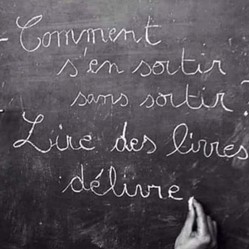 - Comment
s'en sortir
sans sortir ?
Lire des livres
délivre